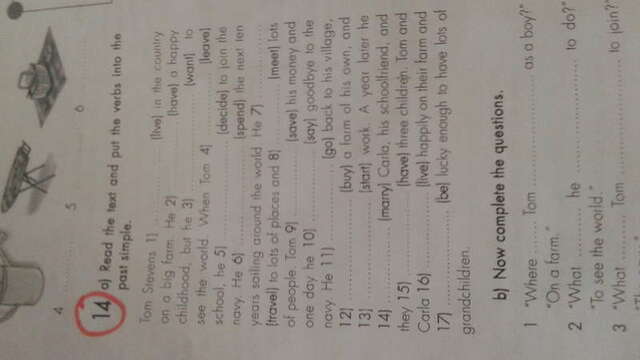 4 ............ 5 ............ 6
14 a) Read the text and put the verbs into the
past simple.
Tom Stevens 1) .................... (live) in the country
on a big farm. He 2) .................... (have) a happy
childhood, but he 3) .................... (want) to
see the world. When Tom 4) .................... (leave)
school, he 5) .................... (decide) to join the
navy. He 6) .................... (spend) the next ten
years sailing around the world. He 7) ....................
(travel) to lots of places and 8) .................... (meet) lots
of people. Tom 9) .................... (save) his money and
one day he 10) .................... (say) goodbye to the
navy. He 11) .................... (go) back to his village,
12) .................... (buy) a farm of his own, and
13) .................... (start) work. A year later he
14) .................... (marry) Carla, his schoolfriend, and
they 15) .................... (have) three children. Tom and
Carla 16) .................... (live) happily on their farm and
17) .................... (be) lucky enough to have lots of
grandchildren.
b) Now complete the questions.
1 "Where .......... Tom .................... as a boy?"
"On a farm."
2 "What .......... he .................... to do?"
"To see the world."
3 "What .......... Tom .................... to join?"